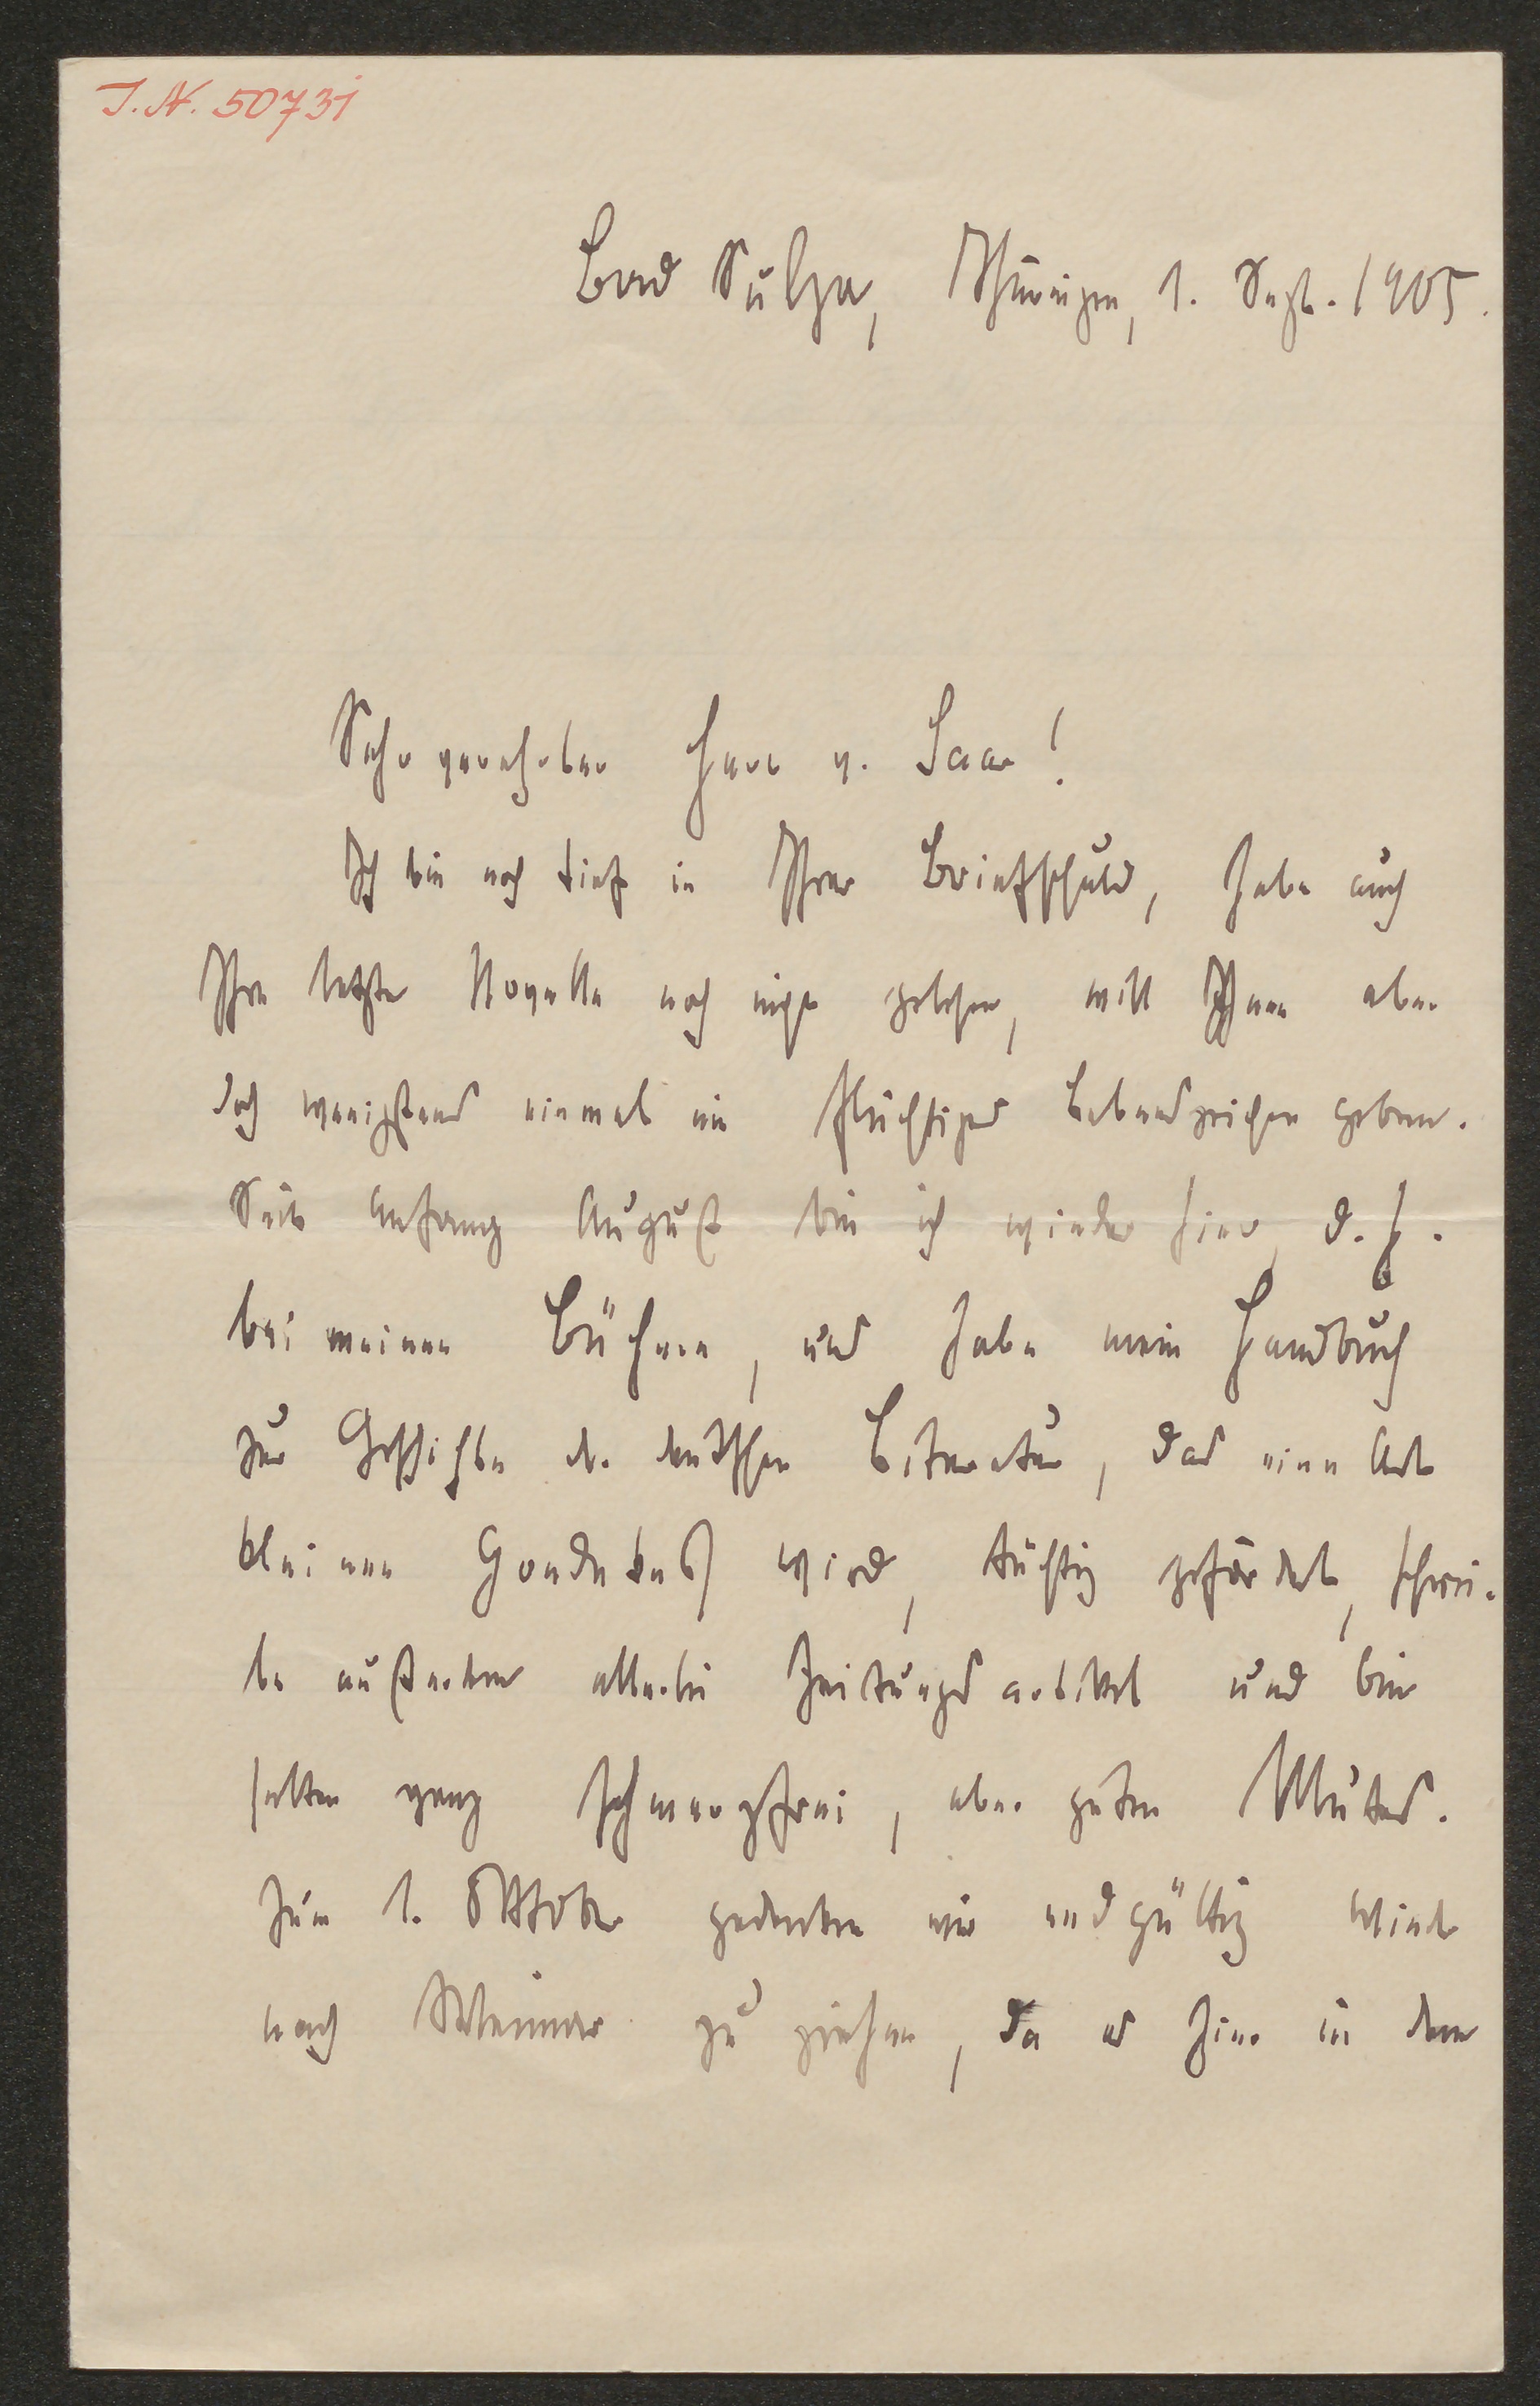 I.N. 50731
Bad Sulza, Thüringen, 1. Sept. 1905.
Sehr verehrter Herr v. Saar!
Ich bin noch tief in Ihrer Briefschuld, habe auch
Ihre letzte Novelle noch nicht gelesen, will Ihnen aber
doch wenigstens einmal ein flüchtiges Lebenszeichen geben.
Seit Anfang August bin ich wieder hier, d. h.
bei meinen Büchern, und habe mein Handbuch
zur Geschichte der deutschen Literatur, das eine Art
kleinen Goedekes wird, tüchtig gefördert, schrei-
be außerdem allerlei Zeitungsartikel und bin
selten ganz schmerzfrei, aber guten Mutes.
Zum 1. Oktober gedenken wir endgültig wieder
nach Weimar zu ziehen, da es hier in dem